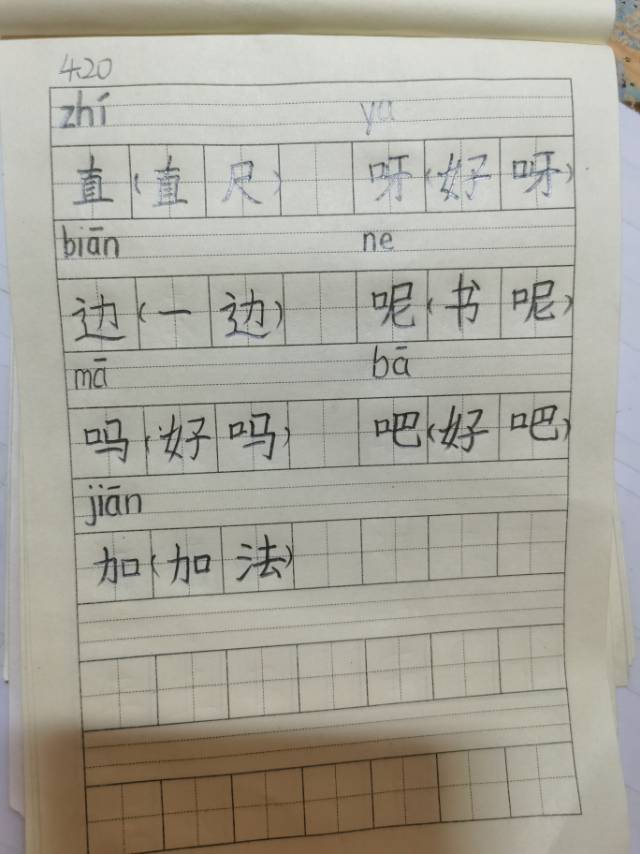 420
zhí ya
直(直尺) 呀(好呀)
biān ne
边(一边) 呢(书呢)
mā bā
吗(好吗) 吧(好吧)
jiān
加(加法)